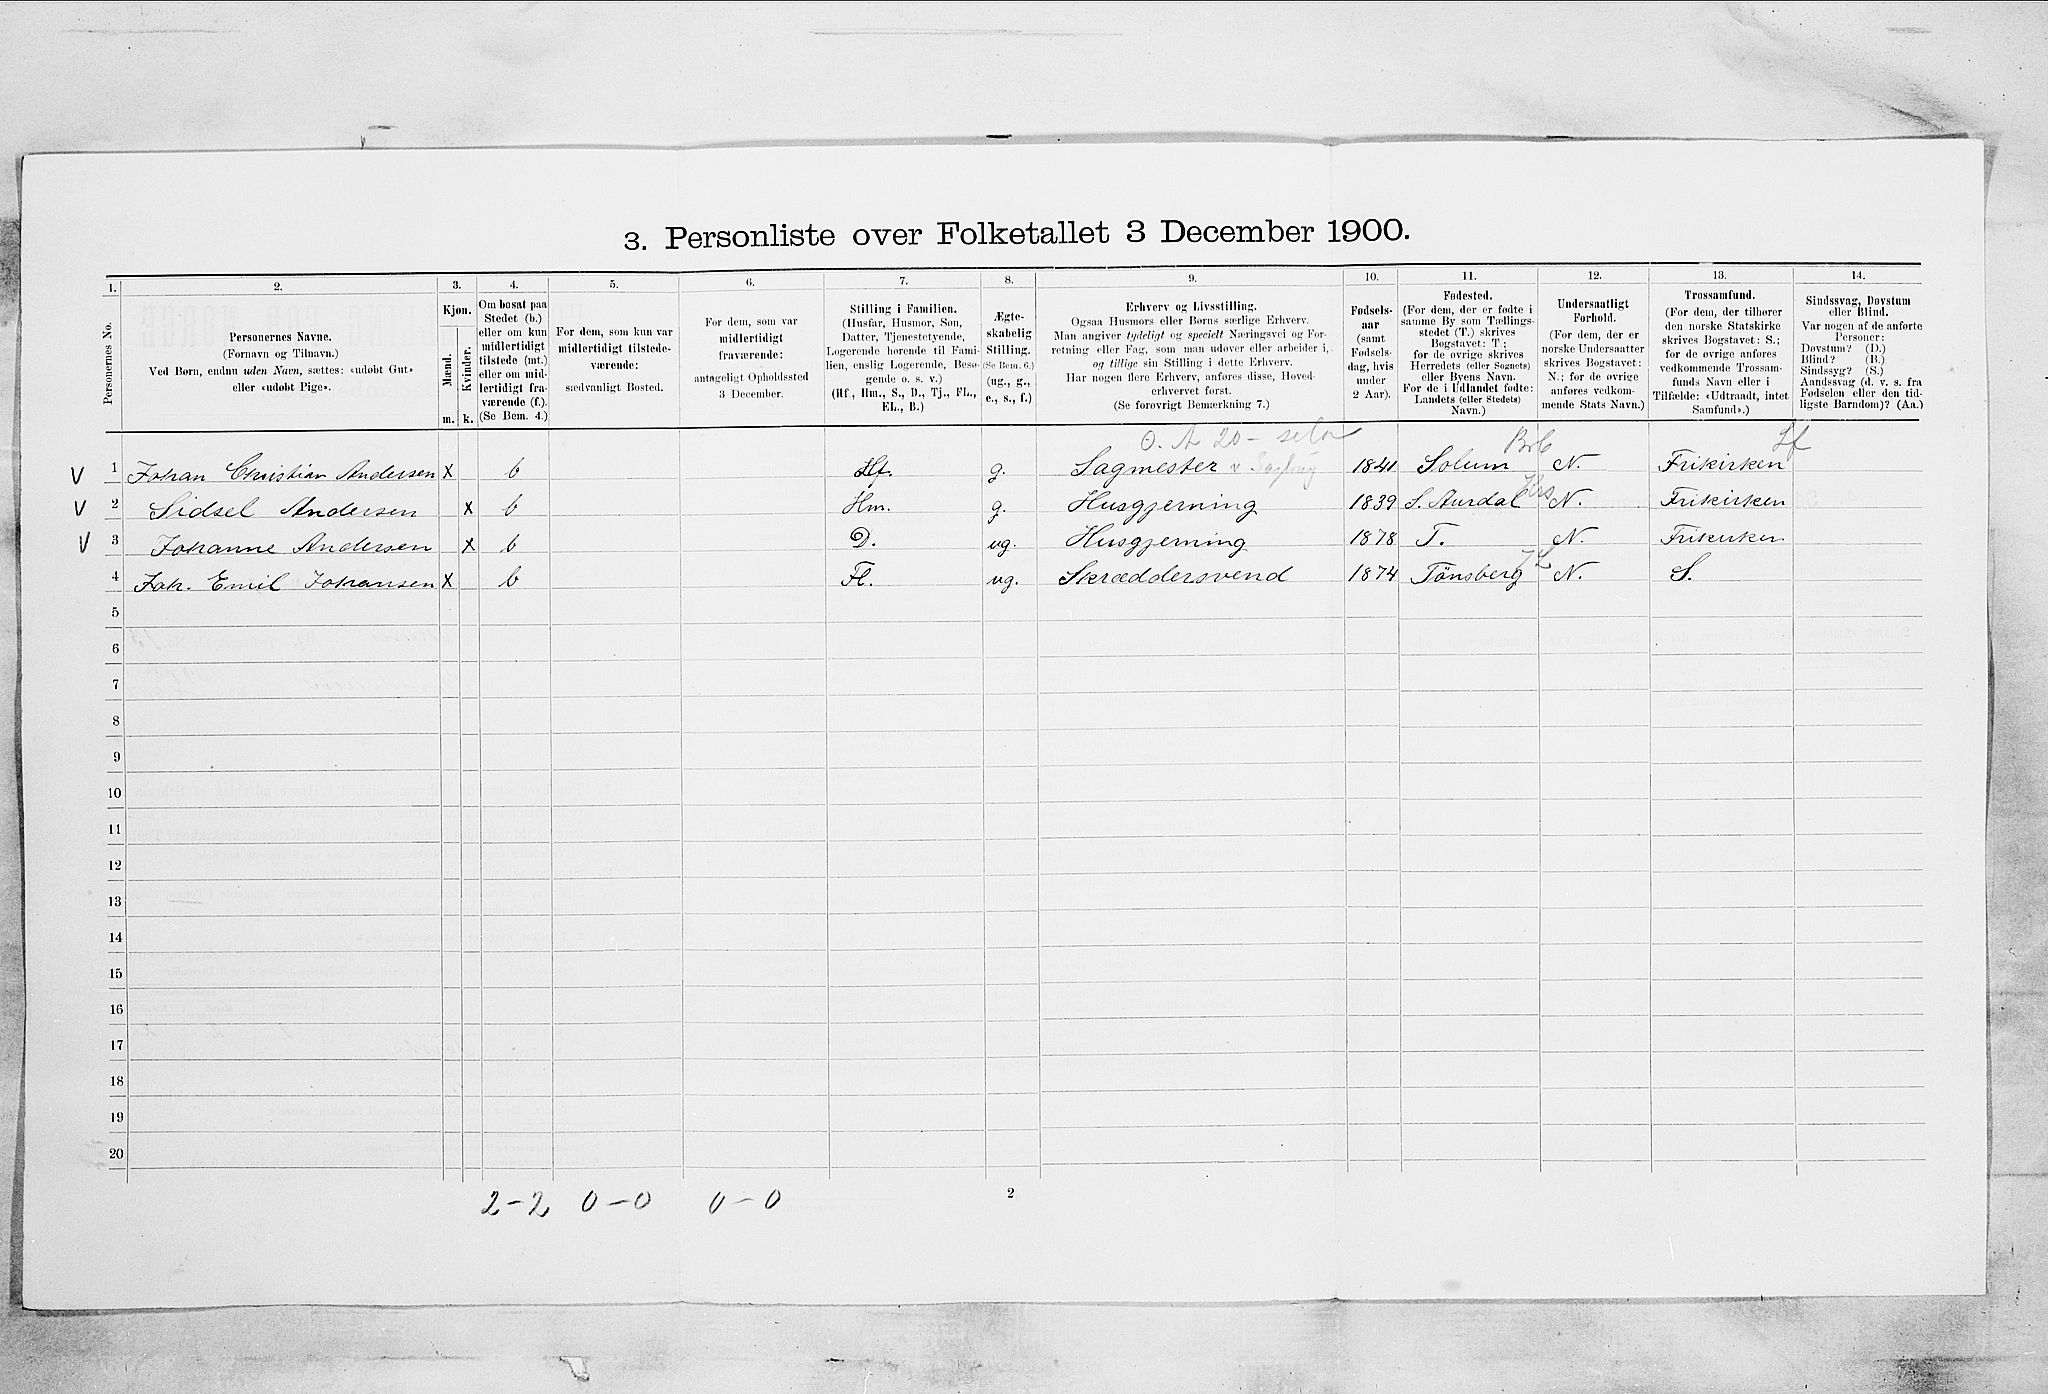 3. Personliste over Folketallet 3 December 1900.
1. 2. 3. 4. 5. 6. 7. 8. 9. 10. 11. 12. 13. 14.
Personernes No.
Personernes Navne.
(Fornavn og Tilnavn.)
Ved Børn, endnu uden Navn, sættes: «udøbt Gut»
eller «udøbt Pige».
Kjøn.
Mænd.
Kvinder.
m. k.
Om bosat paa
Stedet (b.)
eller om kun
midlertidigt
tilstede (mt.)
eller om mid-
lertidigt fra-
værende (f.).
(Se Bem. 4.)
For dem, som kun var
midlertidigt tilstede-
værende:
sædvanligt Bosted.
For dem, som var
midlertidigt
fraværende:
antageligt Opholdssted
3 December.
Stilling i Familien.
(Husfar, Husmor, Søn,
Datter, Tjenestetyende,
Logerende hørende til Fami-
lien, enslig Logerende, Besø-
gende o. s. v.)
(Hf., Hm., S., D., Tj., FL.,
EL., B.)
Ægte-
skabelig
Stilling.
(Se Bem. 6.)
(ug., g.,
e., s., f.)
Erhverv og Livsstilling.
Ogsaa Husmors eller Børns særlige Erhverv.
Man angiver tydeligt og specielt Næringsvei og For-
retning eller Fag, som man udøver eller arbeider i,
og tillige sin Stilling i dette Erhverv.
Har nogen flere Erhverv, anføres disse, Hoved-
erhvervet først.
(Se forøvrigt Bemærkning 7.)
Fødsels-
aar
(samt
Fødsels-
dag, hvis
under
2 Aar).
Fødested.
(For dem, der er fødte i
samme By som Tællings-
stedet (T.) skrives
Bogstavet: T.;
for de øvrige skrives
Herredets (eller Sognets)
eller Byens Navn.
For de i Udlandet fødte:
Landets (eller Stedets)
Navn.)
Undersaatligt
Forhold.
(For dem, der er
norske Undersaatter
skrives Bogstavet:
N.; for de øvrige
anføres vedkom-
mende Stats Navn.)
Trossamfund.
(For dem, der tilhører
den norske Statskirke
skrives Bogstavet: S.;
for de øvrige anføres
vedkommende Trossam-
funds Navn eller i
Tilfælde: «Udtraadt, intet
Samfund».)
Sindssvag, Døvstum
eller Blind.
Var nogen af de anførte
Personer:
Døvstum? (D.)
Blind? (B.)
Sindssyg? (S.)
Aandssvag (d. v. s. fra
Fødselen eller den tid-
ligste Barndom)? (Aa.)
O. A 20 –
V 1 Johan Christian Andersen x b Hf. g. Sagmester 1841 Solum N. Frikirken
V 2 Sidsel Andersen x b Hm. g. Husgjerning 1839 S. Aurdal N. Frikirken
V 3 Johanne Andersen x b D. ug. Husgjerning 1878 T. N. Frikirken
4 Joh. Emil Johansen x b Fl. ug. Skræddersvend 1874 Tønsberg N. S.
5
6
7
8
9
10
11
12
13
14
15
16
17
18
19
20
2 – 2 0 – 0 0 – 0 2